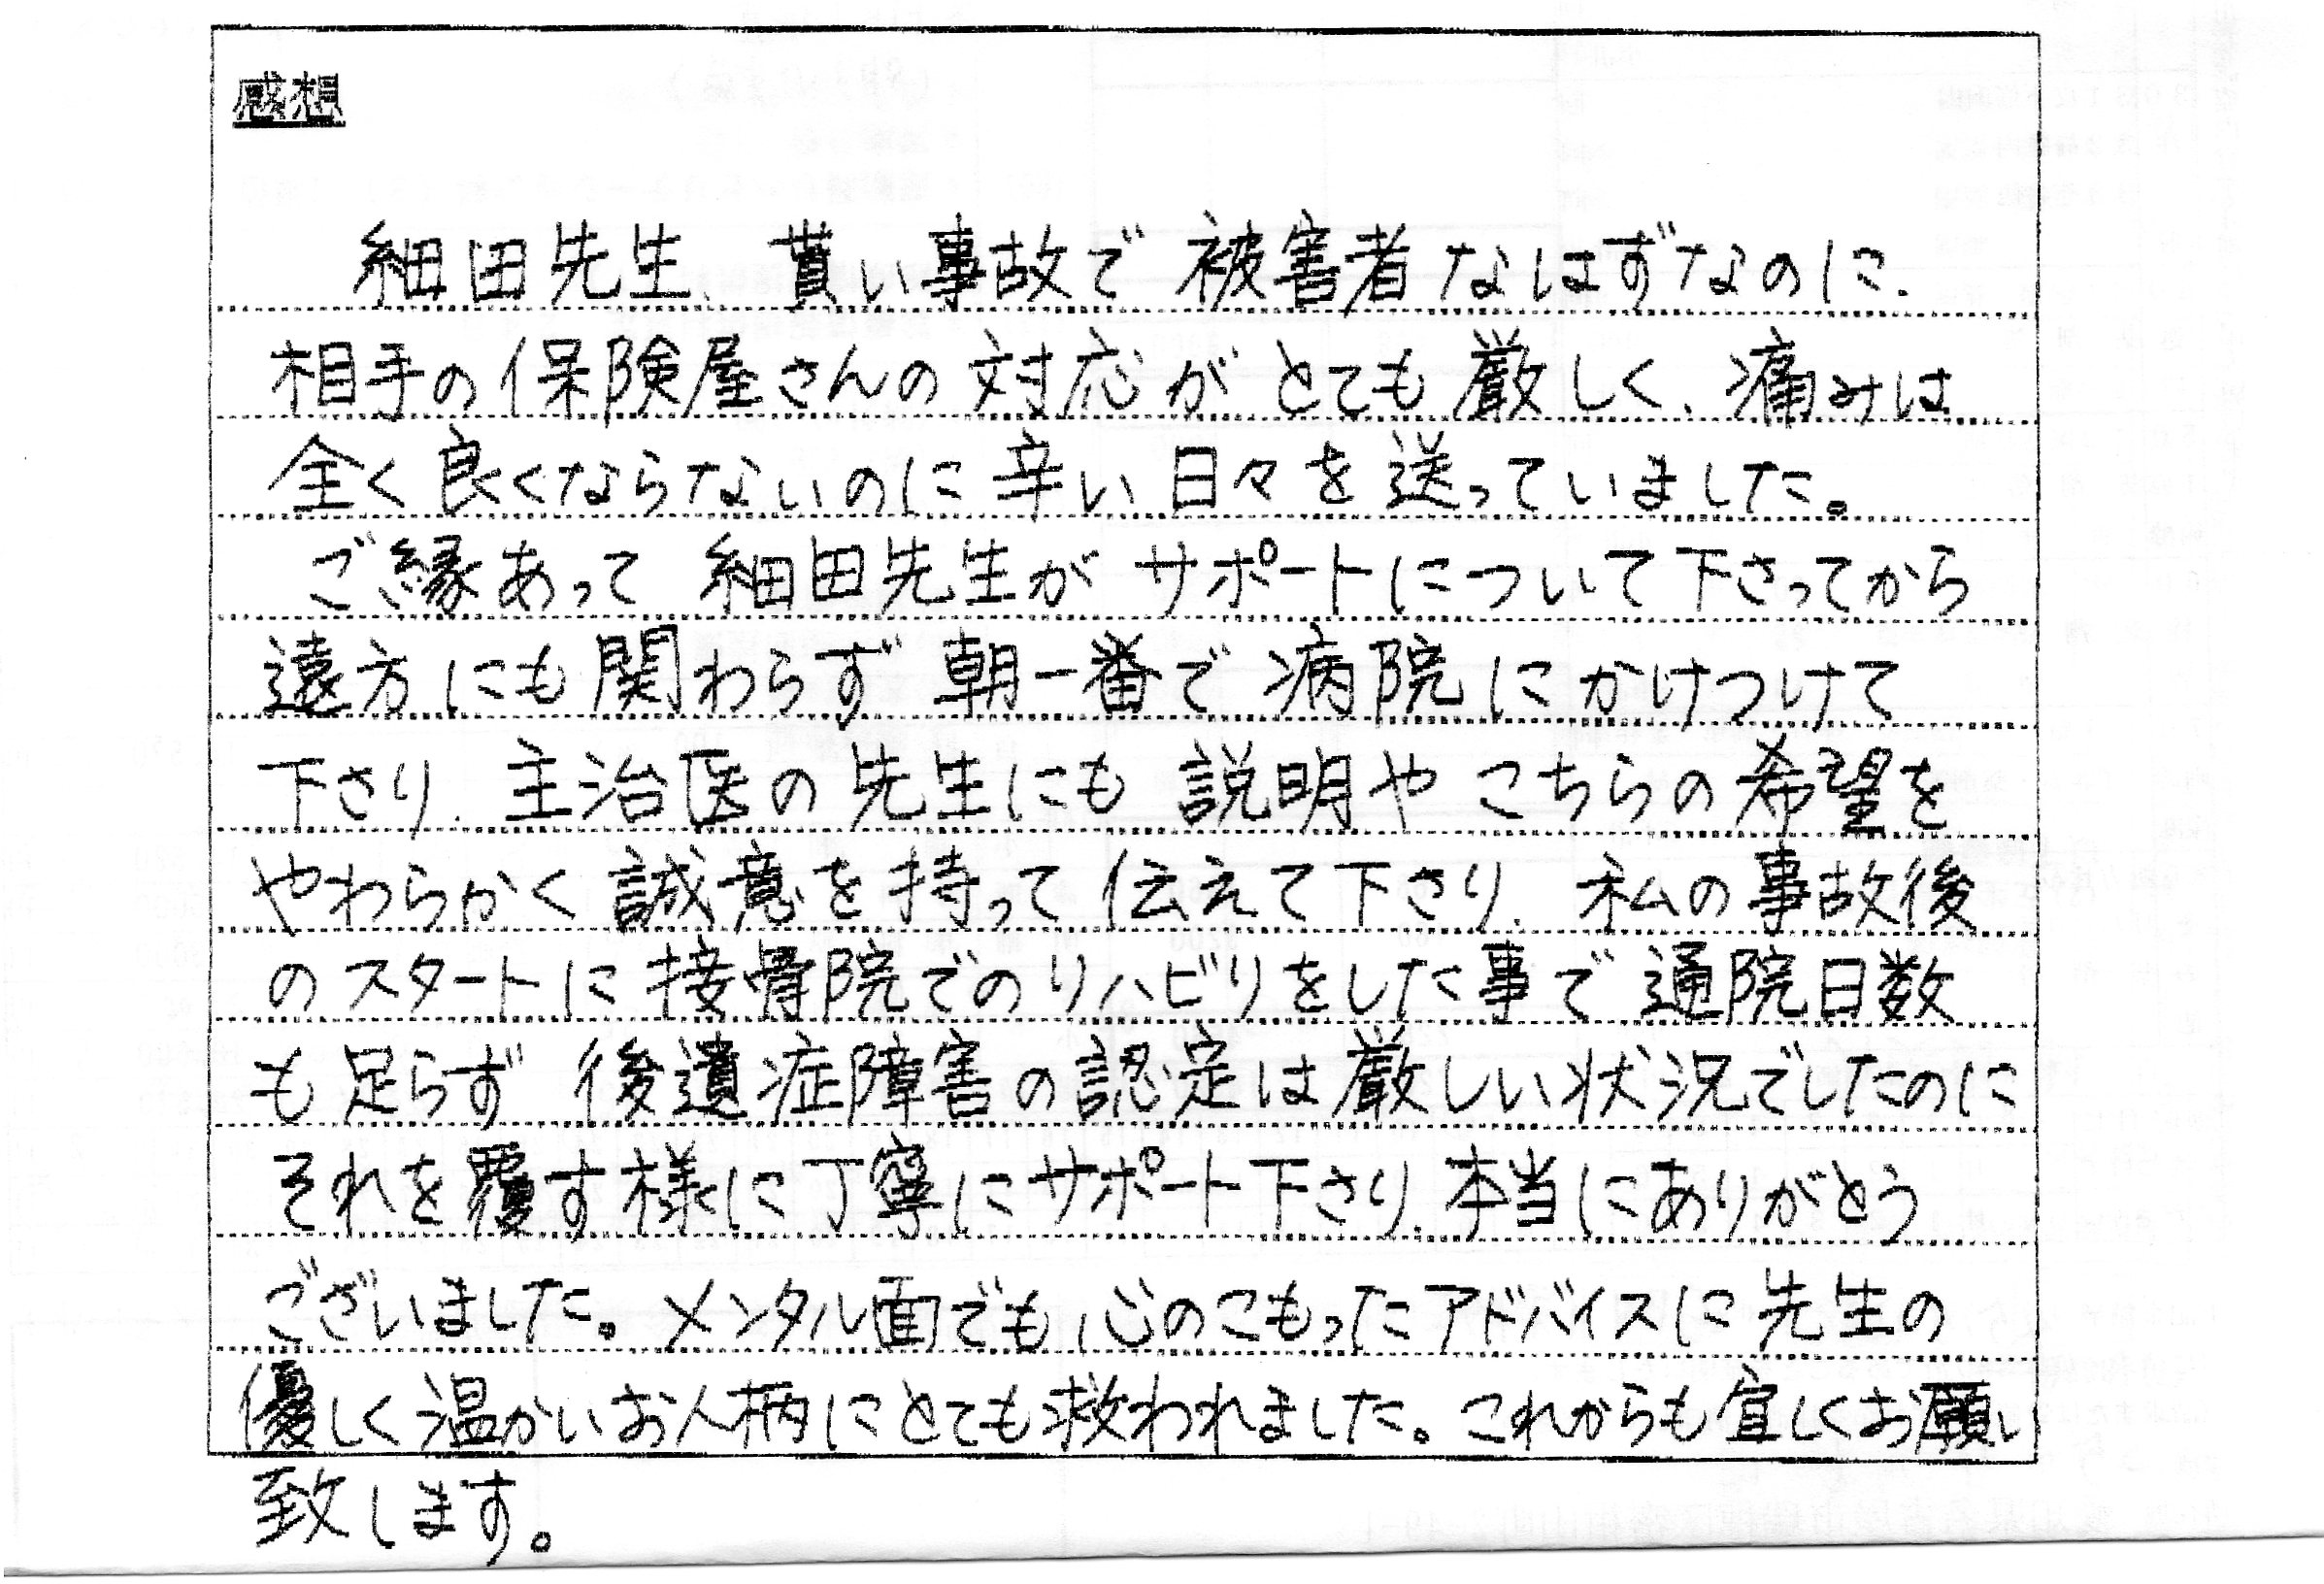 感想
細田先生、貰い事故で被害者なはずなのに、
相手の保険屋さんの対応がとても厳しく、痛みは
全く良くならないのに辛い日々を送っていました。
ご縁あって細田先生がサポートについて下さってから
遠方にも関わらず朝一番で病院にかけつけて
下さり、主治医の先生にも説明やこちらの希望を
やわらかく誠意を持って伝えて下さり、私の事故後
のスタートに接骨院でのリハビリをした事で通院日数
も足らず後遺症障害の認定は厳しい状況でしたのに
それを覆す様に丁寧にサポート下さり、本当にありがとう
ございました。メンタル面でも心のこもったアドバイスに先生の
優しく温かいお人柄にとても救われました。これからも宜しくお願い
致します。